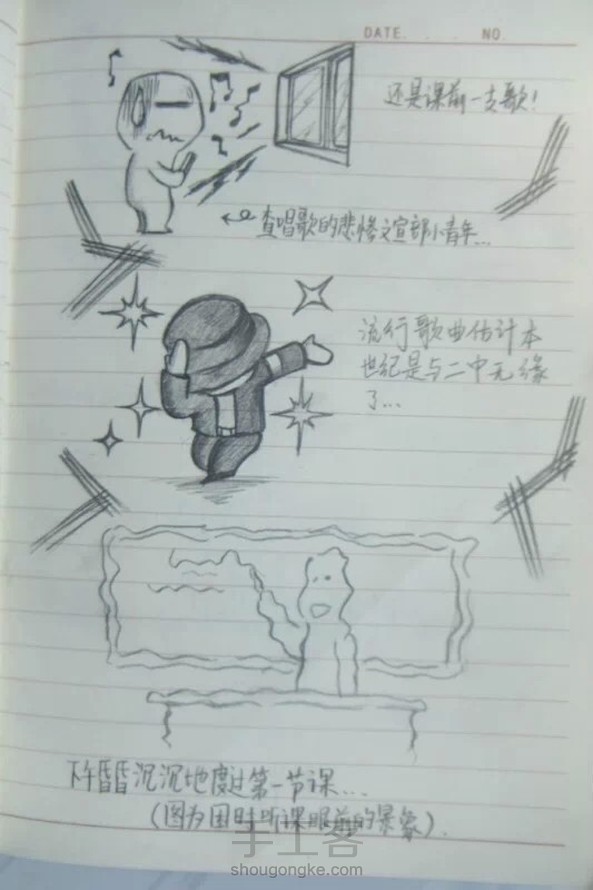 DATE. . . NO.
还是课前一支歌!
查唱歌的悲惨文宣部小青年...
流行歌曲估计本
世纪是与二中无缘
了...
下午昏昏沉沉地度过第一节课...
(图为困时听课眼前的景象).
手工客
shougongke.com